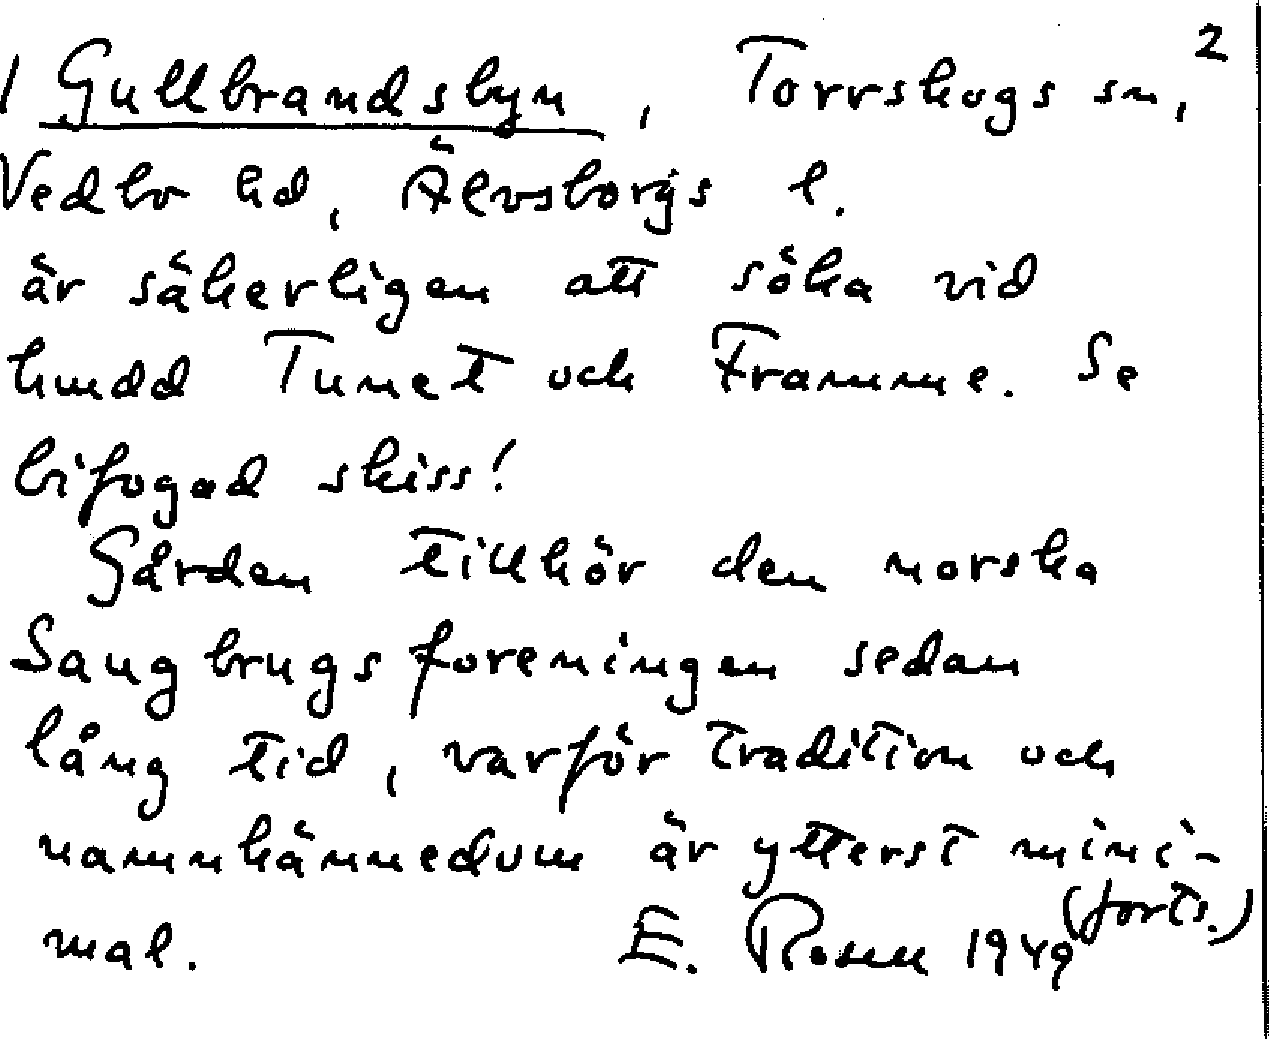 2
1 Gullbrandsbyn, Torrskogs sn,
Vedbo hd, Älvsborgs l.
är säkerligen att söka vid
hmdd Tunet och Framme. Se
bifogad skiss!
Gården tillhör den norska
Saugbrugsforeningen sedan
lång tid, varför tradition och
namnkännedom är ytterst mini-
mal. E. Rosen 1949 (forts.)